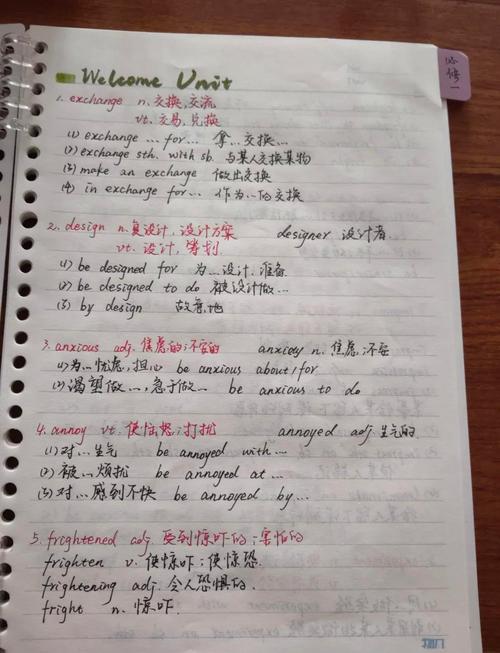 必修一
Welcome Unit
1. exchange n. 交换,交流
vt. 交易,兑换
(1) exchange ... for ... 拿...交换...
(2) exchange sth. with sb. 与某人交换某物
(3) make an exchange 做出交换
(4) in exchange for ... 作为...的交换
2. design n. 设计,设计方案 designer 设计者
vt. 设计,筹划
(1) be designed for 为...设计.准备
(2) be designed to do 被设计做...
(3) by design 故意地
3. anxious adj. 焦虑的;不安的 anxiety n. 焦虑;不安
(1)为...忧虑,担心 be anxious about/for
(2)渴望做...,急于做... be anxious to do
4. annoy vt. 使恼怒;打扰 annoyed adj. 生气的
(1)对...生气 be annoyed with...
(2)被...烦扰 be annoyed at ...
(3)对...感到不快 be annoyed by...
5. frightened adj. 受到惊吓的;害怕的
frighten v. 使惊吓;使惊恐.
frightening adj. 令人恐惧的.
fright n. 惊吓.